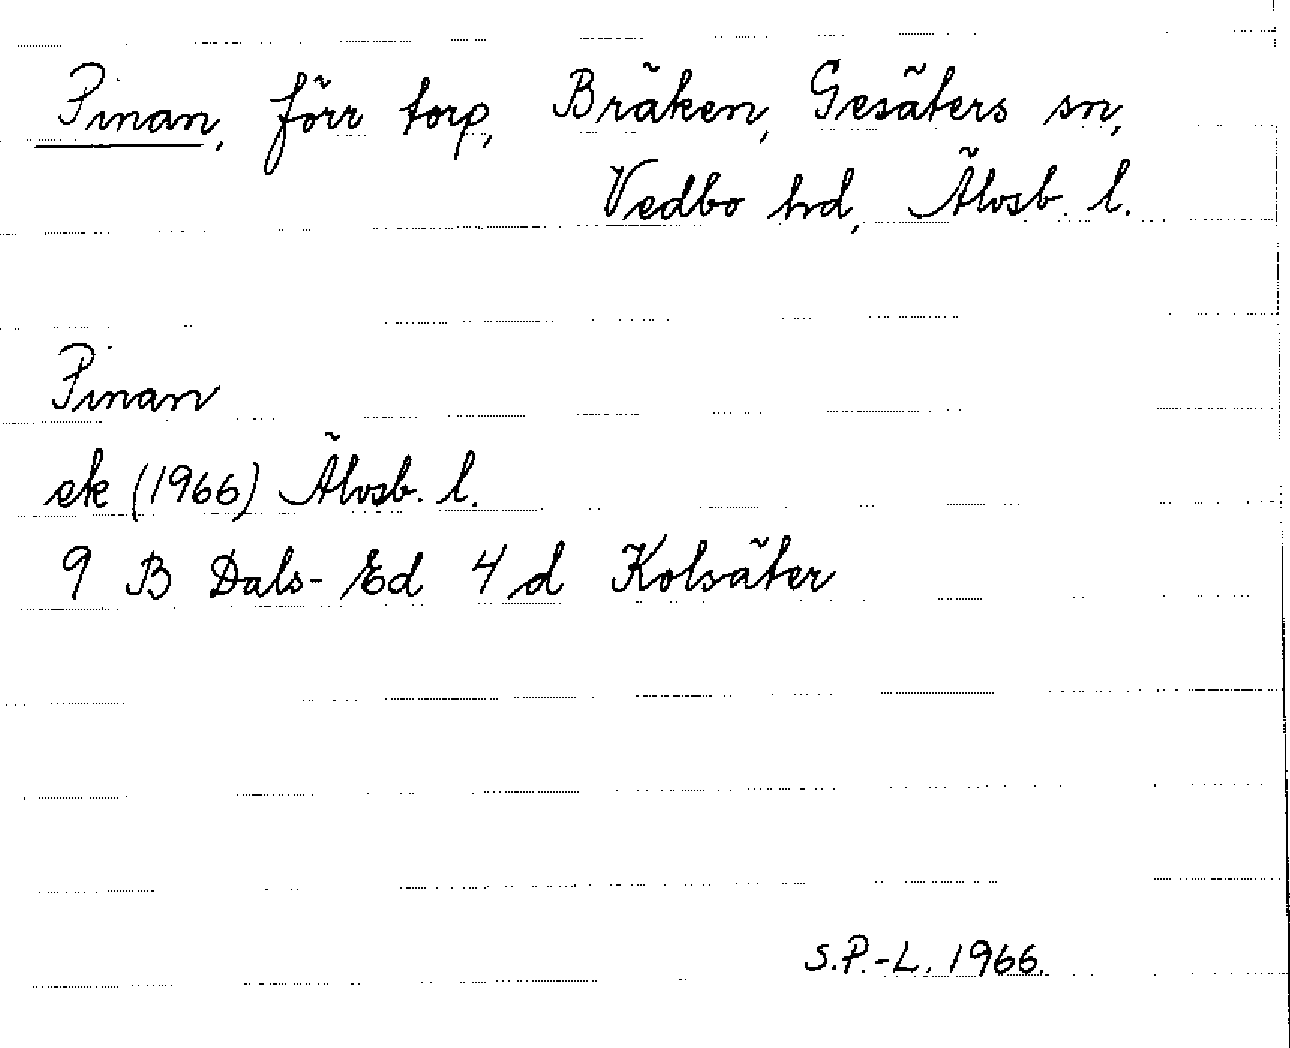 Pinan, förr torp, Bräken, Gesäters sn,
Vedbo hd, Älvsb. l.
Pinan
ek (1966) Älvsb. l.
9 B Dals-Ed 4 d Kolsäter
S.P.-L. 1966.